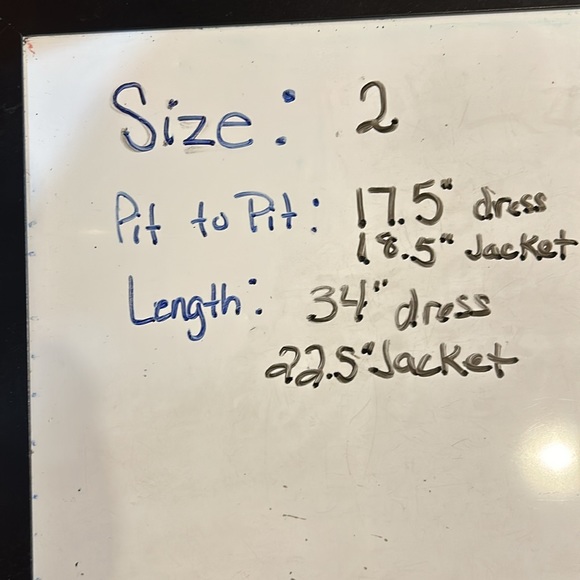 Size: 2
Pit to Pit: 17.5" dress
18.5" Jacket
Length: 34" dress
22.5" Jacket